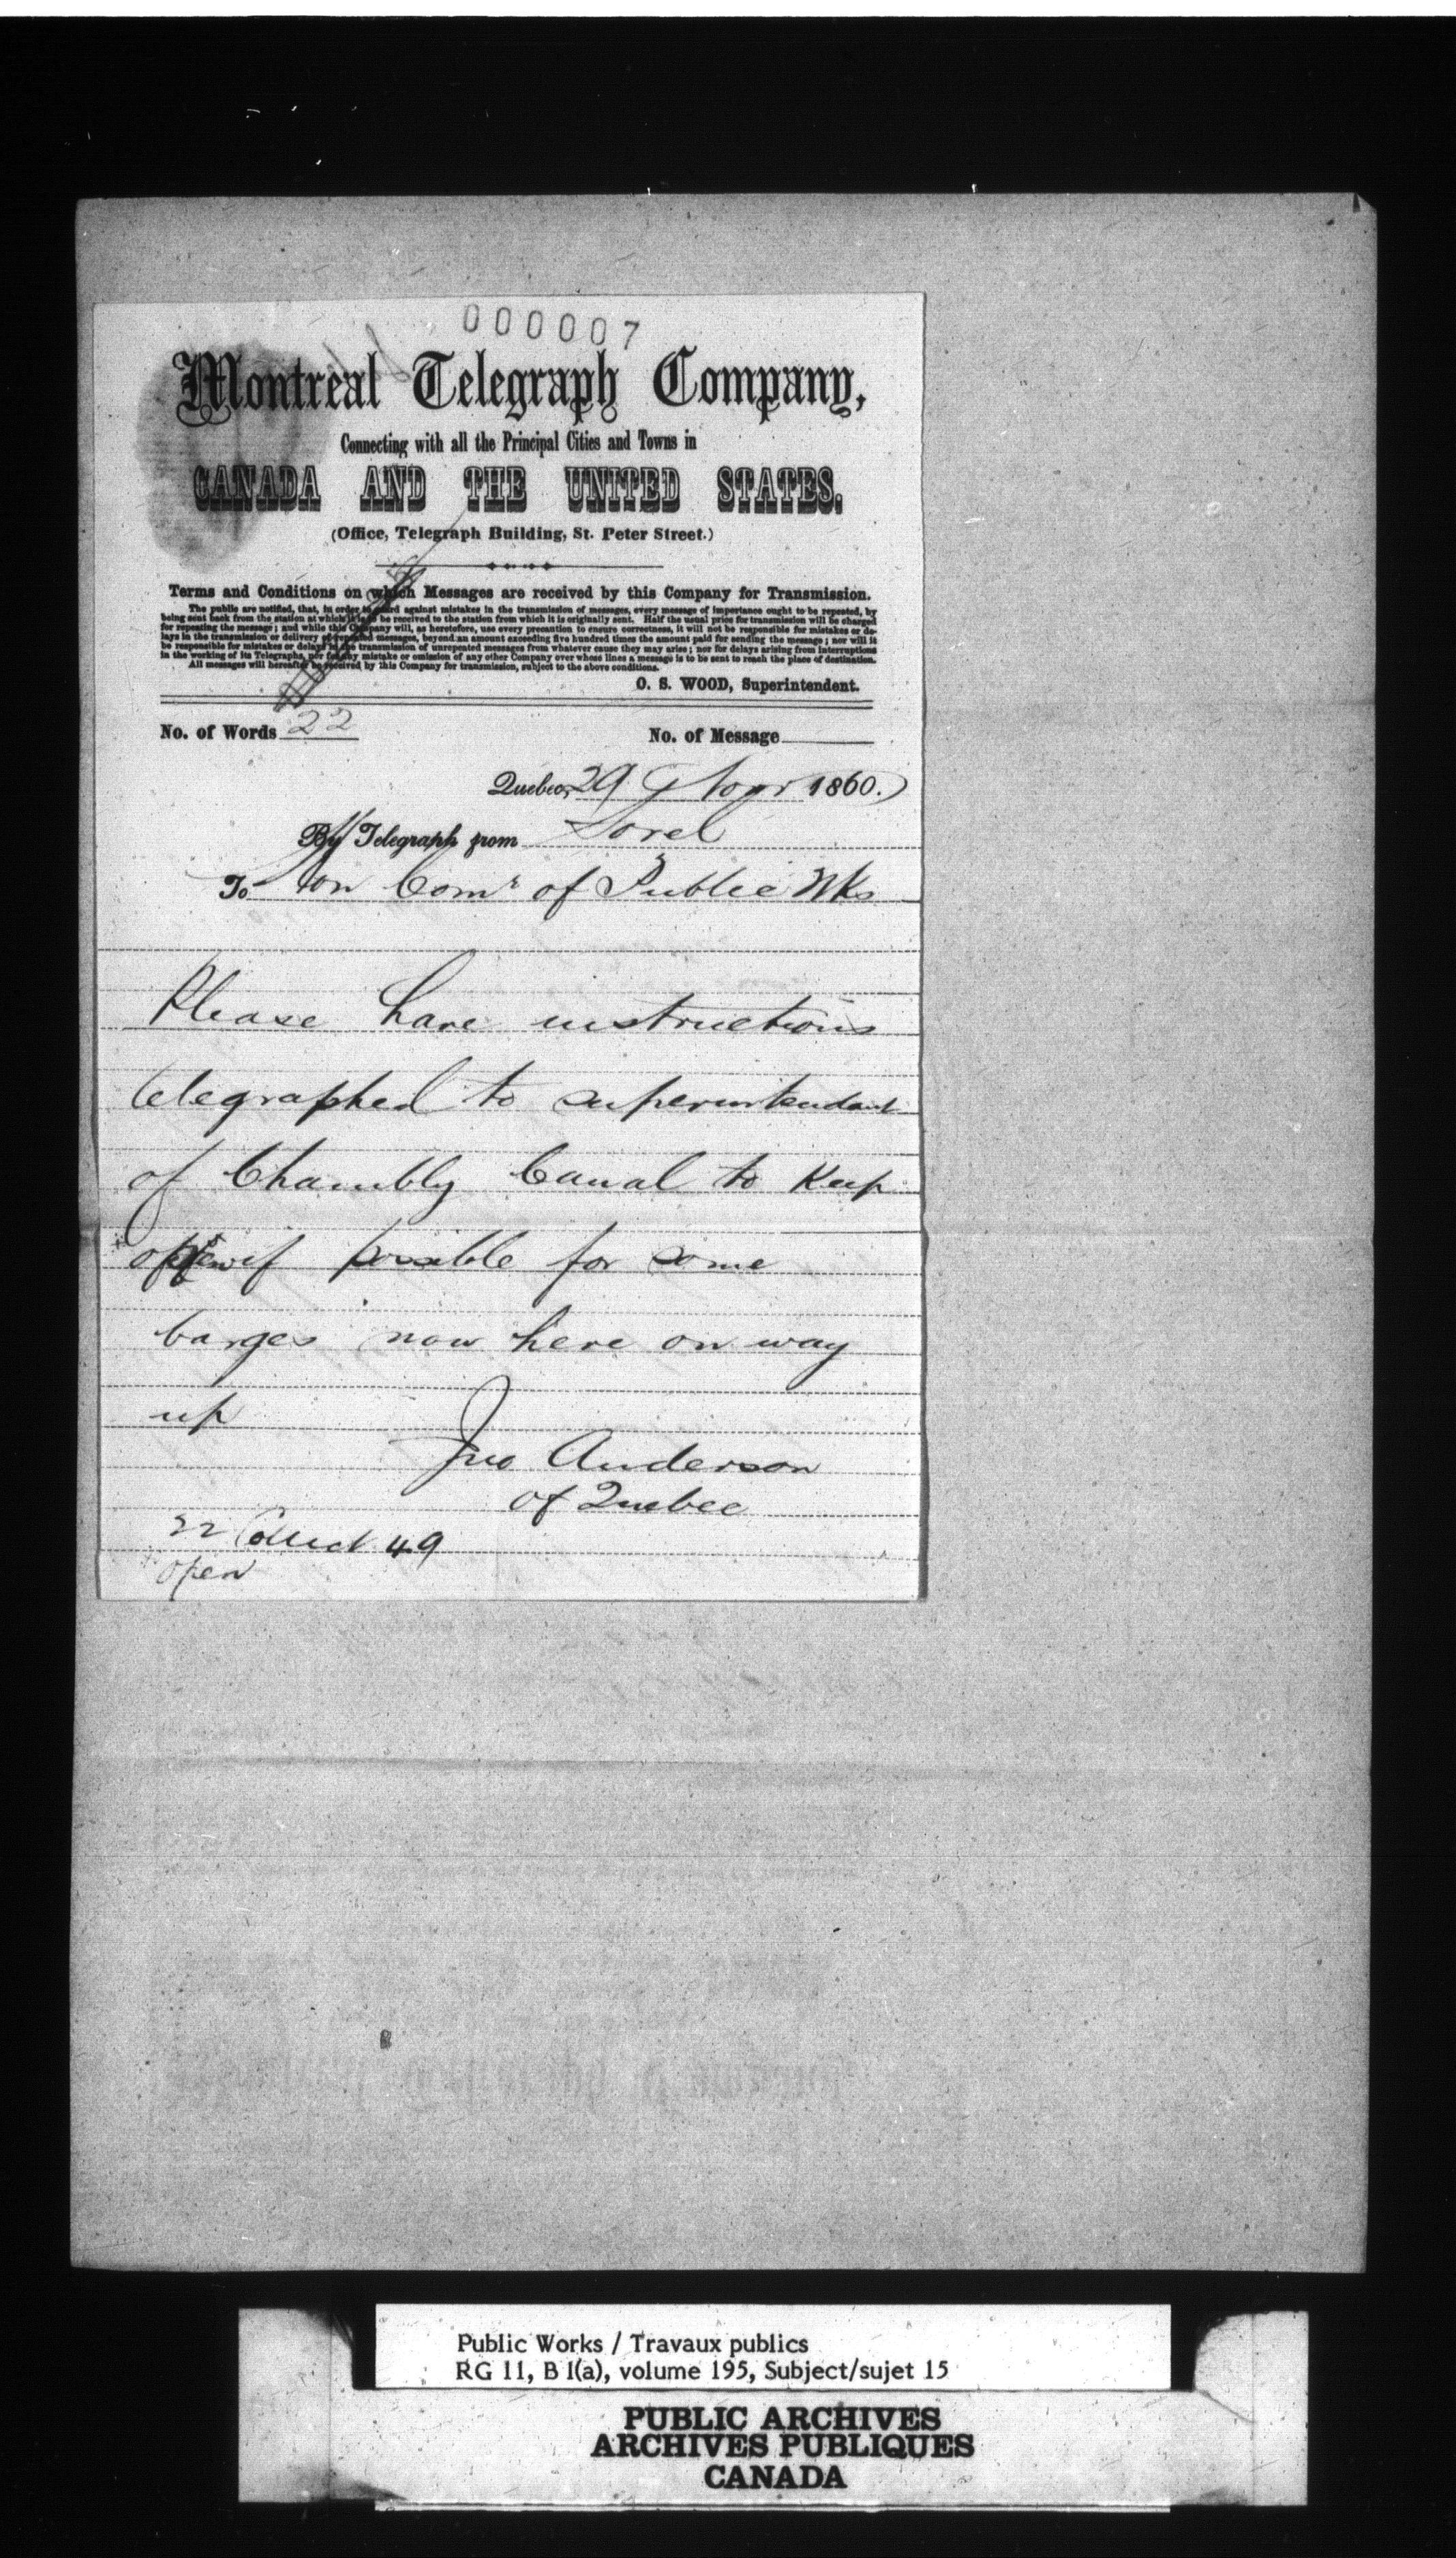 000007
Montreal Telegraph Company,
Connecting with all the Principal Cities and Towns in
CANADA AND THE UNITED STATES.
(Office, Telegraph Building, St. Peter Street.)
Terms and Conditions on which Messages are received by this Company for Transmission.
The public are notified, that, in order to guard against mistakes in the transmission of messages, every message of importance ought to be repeated, by
being sent back from the station at which it is to be received to the station from which it is originally sent. Half the usual price for transmission will be charged
for repeating the message; and while this Company will, as heretofore, use every precaution to ensure correctness, it will not be responsible for mistakes or de-
lays in the transmission or delivery of repeated messages, beyond an amount exceeding five hundred times the amount paid for sending the message; nor will it
be responsible for mistakes or delays in the transmission of unrepeated messages from whatever cause they may arise; nor for delays arising from interruptions
in the working of its Telegraphs, nor for any mistake or omission of any other Company over whose lines a message is to be sent to reach the place of destination.
All messages will hereafter be received by this Company for transmission, subject to the above conditions.
O. S. WOOD, Superintendent.
No. of Words 22 No. of Message
Quebec, 29 Novr 1860.
By Telegraph from Sorel
To Hon Comr of Public Wks
Please have instructions
telegraphed to superintendant
of Chambly Canal to Keep
open if possible for some
barges now here on way
up
Jno Anderson
of Quebec
22 Collect 49
open
Public Works / Travaux publics
RG 11, B 1(a), volume 195, Subject/sujet 15
PUBLIC ARCHIVES
ARCHIVES PUBLIQUES
CANADA